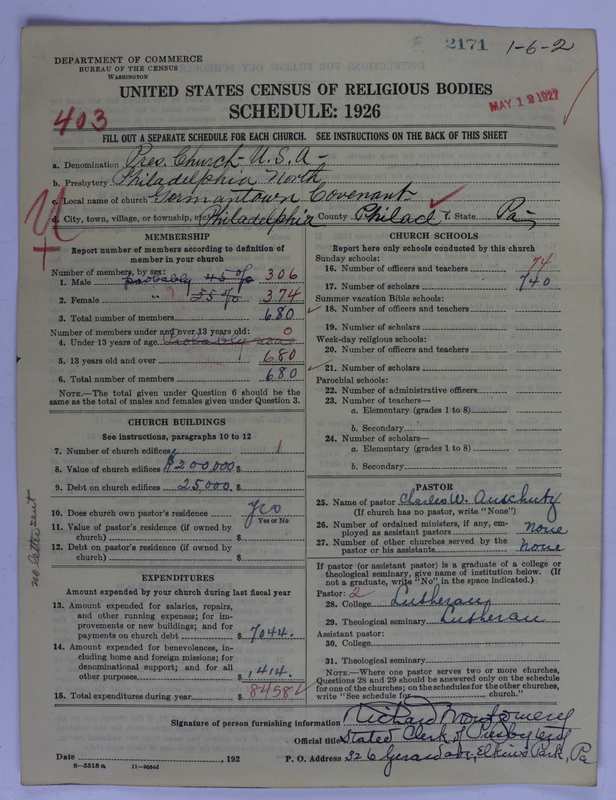 2171 1-6-2
DEPARTMENT OF COMMERCE
BUREAU OF THE CENSUS
WASHINGTON
UNITED STATES CENSUS OF RELIGIOUS BODIES
SCHEDULE: 1926
MAY 12 1927
403
FILL OUT A SEPARATE SCHEDULE FOR EACH CHURCH. SEE INSTRUCTIONS ON THE BACK OF THIS SHEET
a. Denomination Pres. Church - U.S.A -
b. Presbytery Philadelphia North
c. Local name of church Germantown Covenant
d. City, town, village, or township, etc. Philadelphia County Philad f. State Pa
MEMBERSHIP
Report number of members according to definition of member in your church
Number of members, by sex:
1. Male probably 45% 306
2. Female " 55% 374
3. Total number of members 680
Number of members under and over 13 years old:
4. Under 13 years of age Probably none 0
5. 13 years old and over 680
6. Total number of members 680
NOTE.—The total given under Question 6 should be
same as the total of males and females given under Question 3.
CHURCH BUILDINGS
See instructions, paragraphs 10 to 12
7. Number of church edifices 1
8. Value of church edifices $200,000
9. Debt on church edifices 25,000. $
10. Does church own pastor's residence yes
Yes or No
11. Value of pastor's residence (if owned by
church) $
12. Debt on pastor's residence (if owned by
church) $
no letter sent
EXPENDITURES
Amount expended by your church during last fiscal year
13. Amount expended for salaries, repairs,
and other running expenses; for im-
provements or new buildings; and for
payments on church debt $ 7044.
14. Amount expended for benevolences, in-
cluding home and foreign missions; for
denominational support; and for all
other purposes $ 1,414.
15. Total expenditures during year $ 8458
CHURCH SCHOOLS
Report here only schools conducted by this church
Sunday schools:
16. Number of officers and teachers 74
17. Number of scholars 740
Summer vacation Bible schools:
18. Number of officers and teachers
19. Number of scholars
Week-day religious schools:
20. Number of officers and teachers
21. Number of scholars
Parochial schools:
22. Number of administrative officers
23. Number of teachers—
a. Elementary (grades 1 to 8)
b. Secondary
24. Number of scholars—
a. Elementary (grades 1 to 8)
b. Secondary
PASTOR
25. Name of pastor Charles W. Anschutz
(If church has no pastor, write "None")
26. Number of ordained ministers, if any, em-
ployed as assistant pastors none
27. Number of other churches served by the
pastor or his assistants none
If pastor (or assistant pastor) is a graduate of a college or
theological seminary, give name of institution below. (If
not a graduate, write "No" in the space indicated.)
Pastor: 2
28. College Lutheran
29. Theological seminary Lutheran
Assistant pastor:
30. College
31. Theological seminary
NOTE.—Where one pastor serves two or more churches,
Questions 28 and 29 should be answered only on the schedule
for one of the churches; on the schedules for the other churches,
write "See schedule for church."
Signature of person furnishing information Richard Montgomery
Official title Stated Clerk of Presbytery
Date , 192 P. O. Address 326 Gerard Ave, Elkins Park, Pa